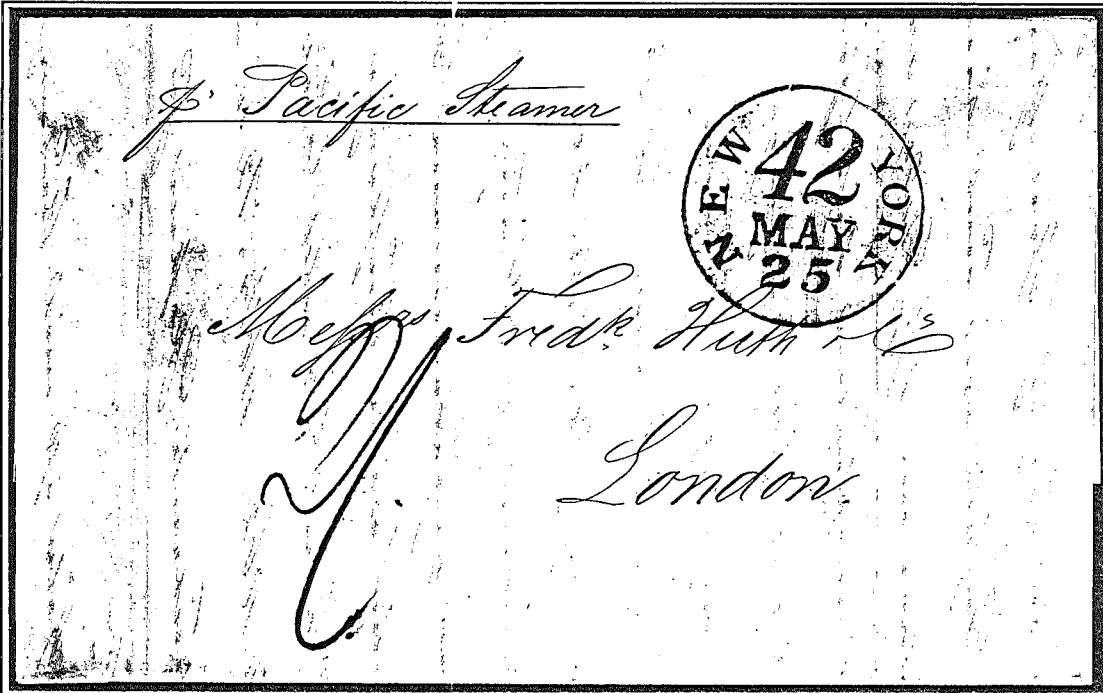 pr Pacific Steamer
NEW YORK
42
MAY
25
Messrs Fredk Huth & Co
London.